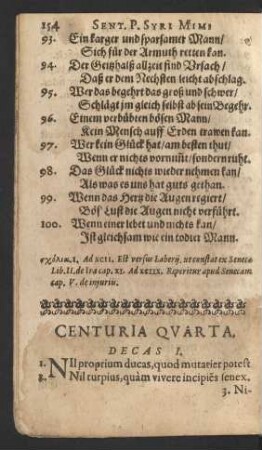 154 SENT. P. SYRI MIMI
93. Ein karger und sparsamer Mann/
Sich für der Armuth retten kan.
94. Der Geitzhalß allzeit find Ursach/
Daß er dem Nechsten leicht abschlag.
95. Wer das begehrt das groß und schwer/
Schlägt jm gleich selbst ab sein Begehr.
96. Einem verbübten bösen Mann/
Kein Mensch auff Erden trawen kan.
97. Wer kein Glück hat/ am besten thut/
Wenn er nichts vornimt/ sondern ruht.
98. Das Glück nichts wieder nehmen kan/
Als was es uns hat guts gethan.
99. Wenn das Hertz die Augen regiert/
Böß Lust die Augen nicht verführt.
100. Wenn einer lebt und nichts kan/
Ist gleichsam wie ein todter Mann.
Ad XCII. Est versus Laberij, ut constat ex Seneca
Lib. II, de Ira cap. XI. Ad Reperitur apud Senecam
cap. V. de
CENTURIA QVARTA,
DECAS I.
1. NIl proprium ducas, quod mutarier potest
2. Nil turpius, quàm vivere incipiẽs senex.
3. Ni-